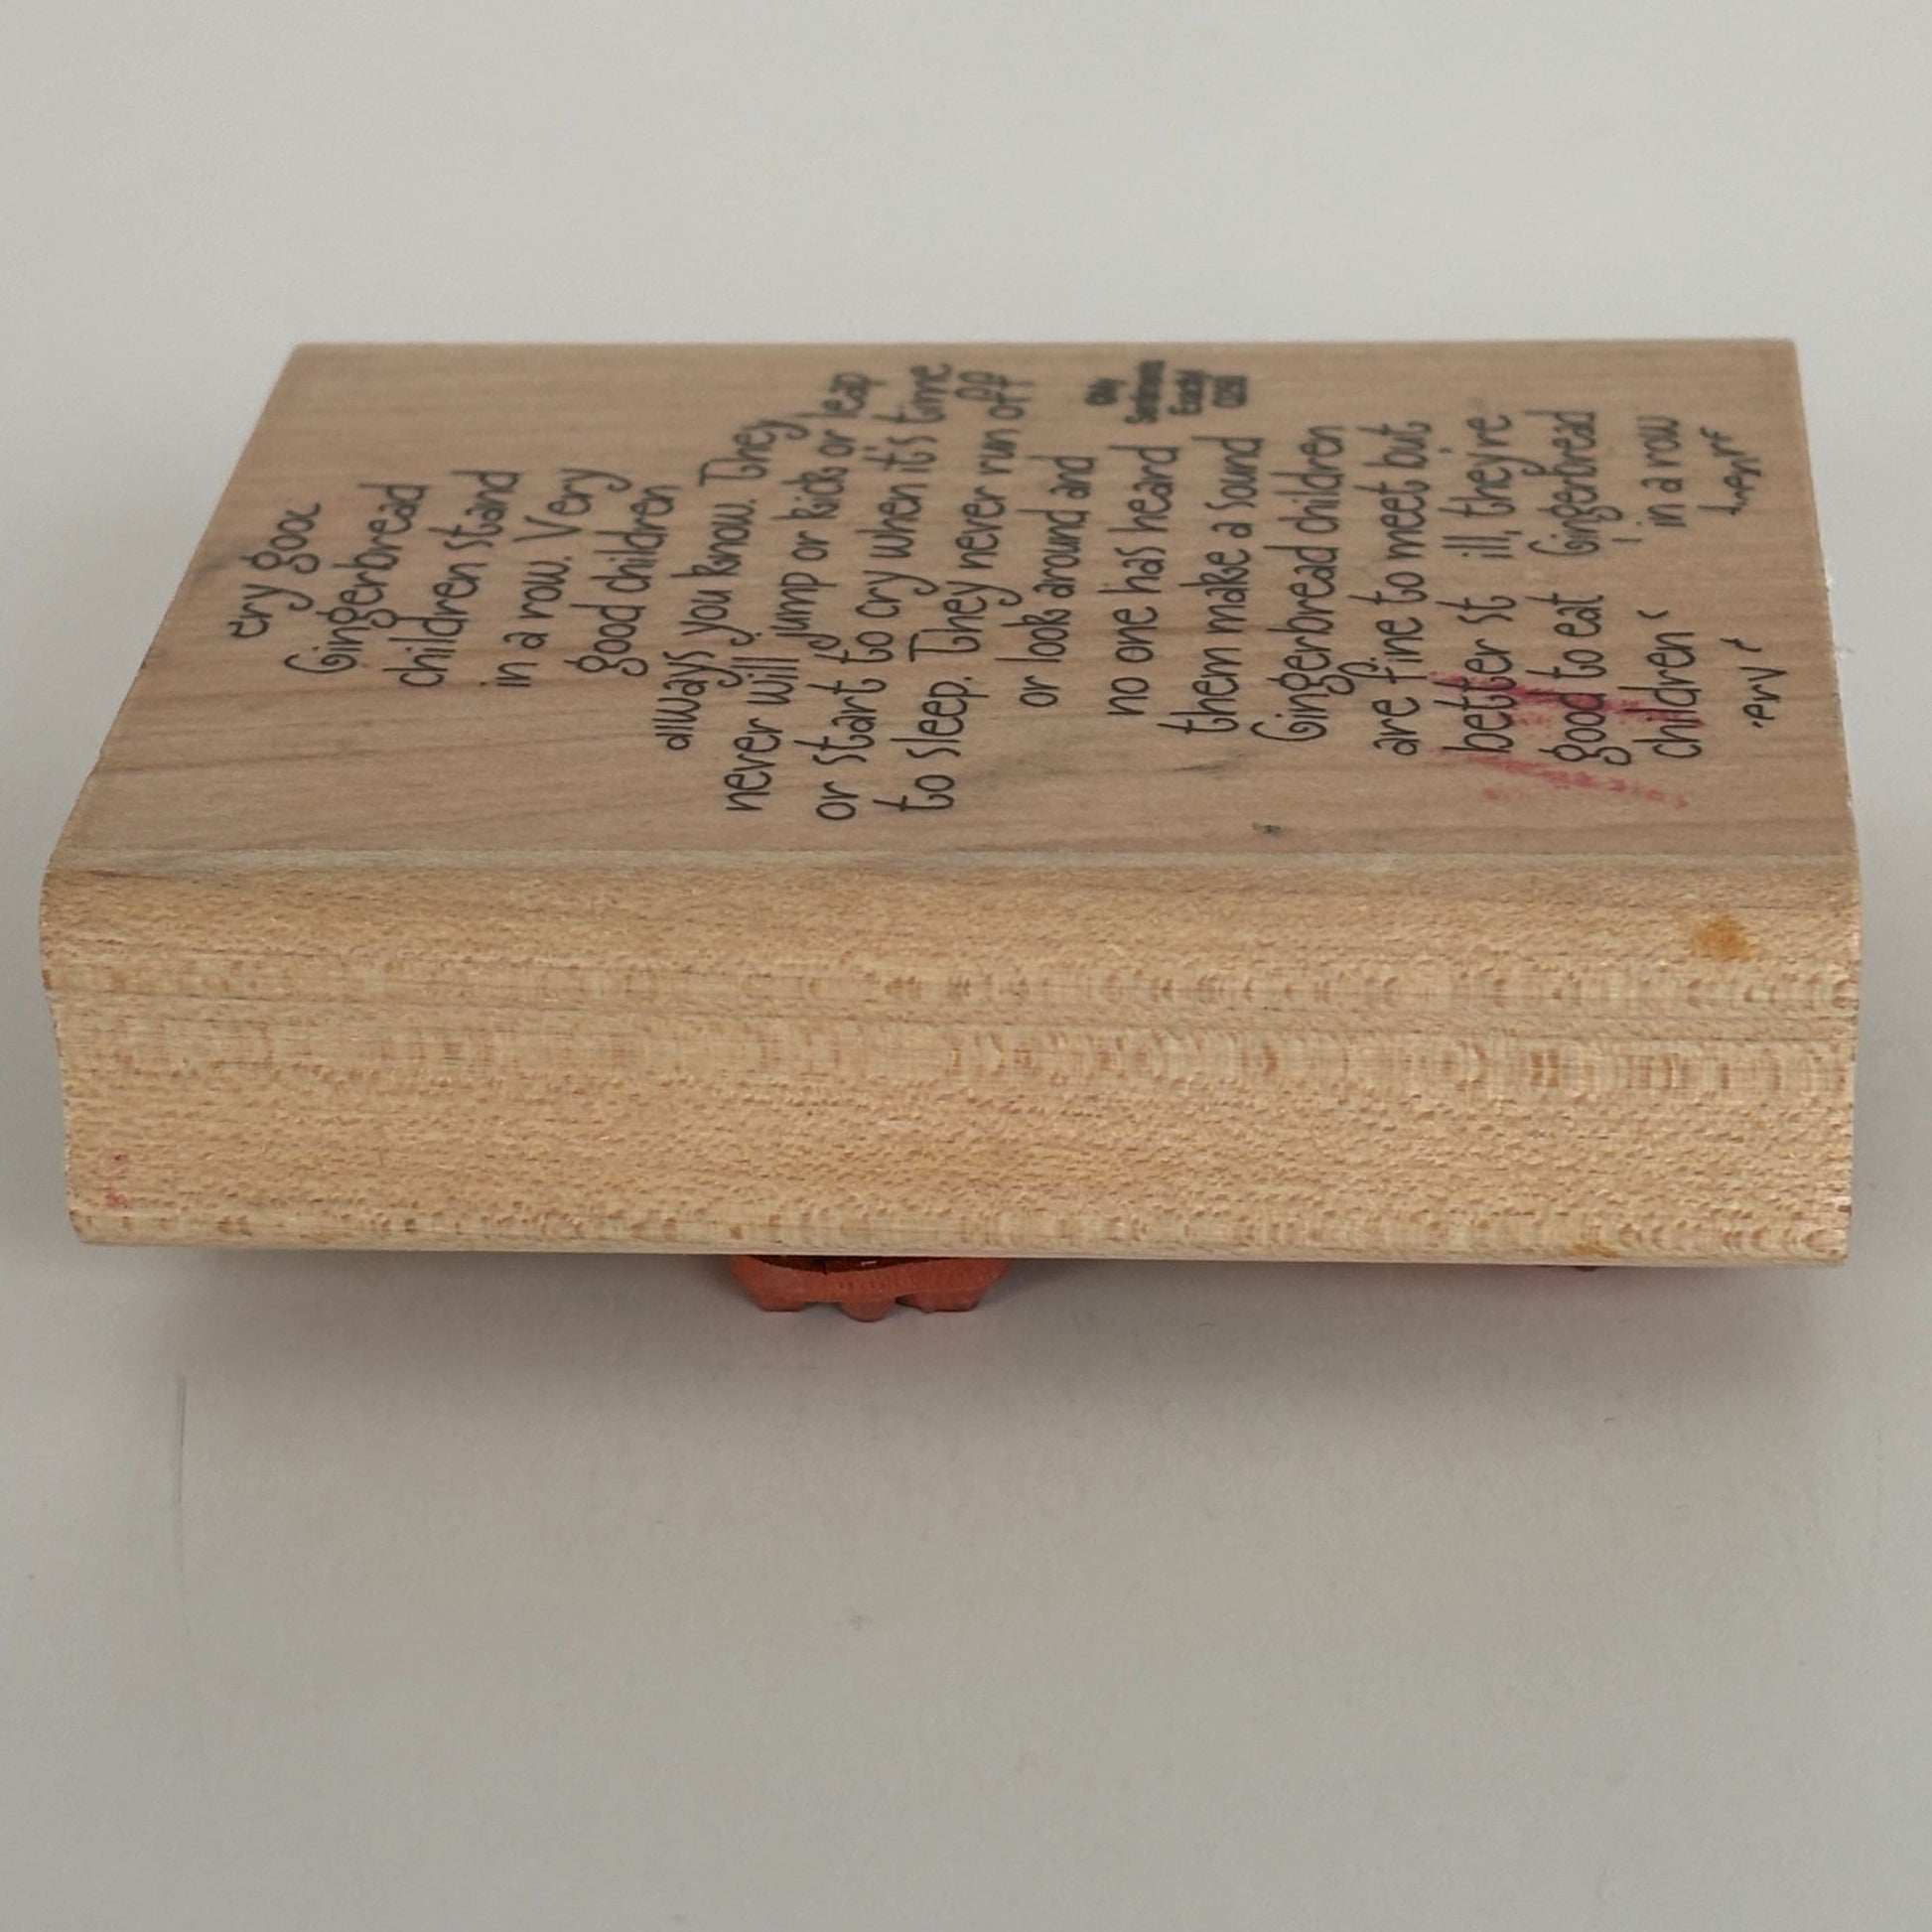 ery goo
Gingerbread
children stand
in a row. Very
good children
always you know. They
never will jump or kick or leap
or start to cry when it's time
to sleep. They never run off
or look around and
no one has heard
them make a sound
Gingerbread children
are fine to meet but
better st ill, they're
good to eat Gingerbread
children in a row